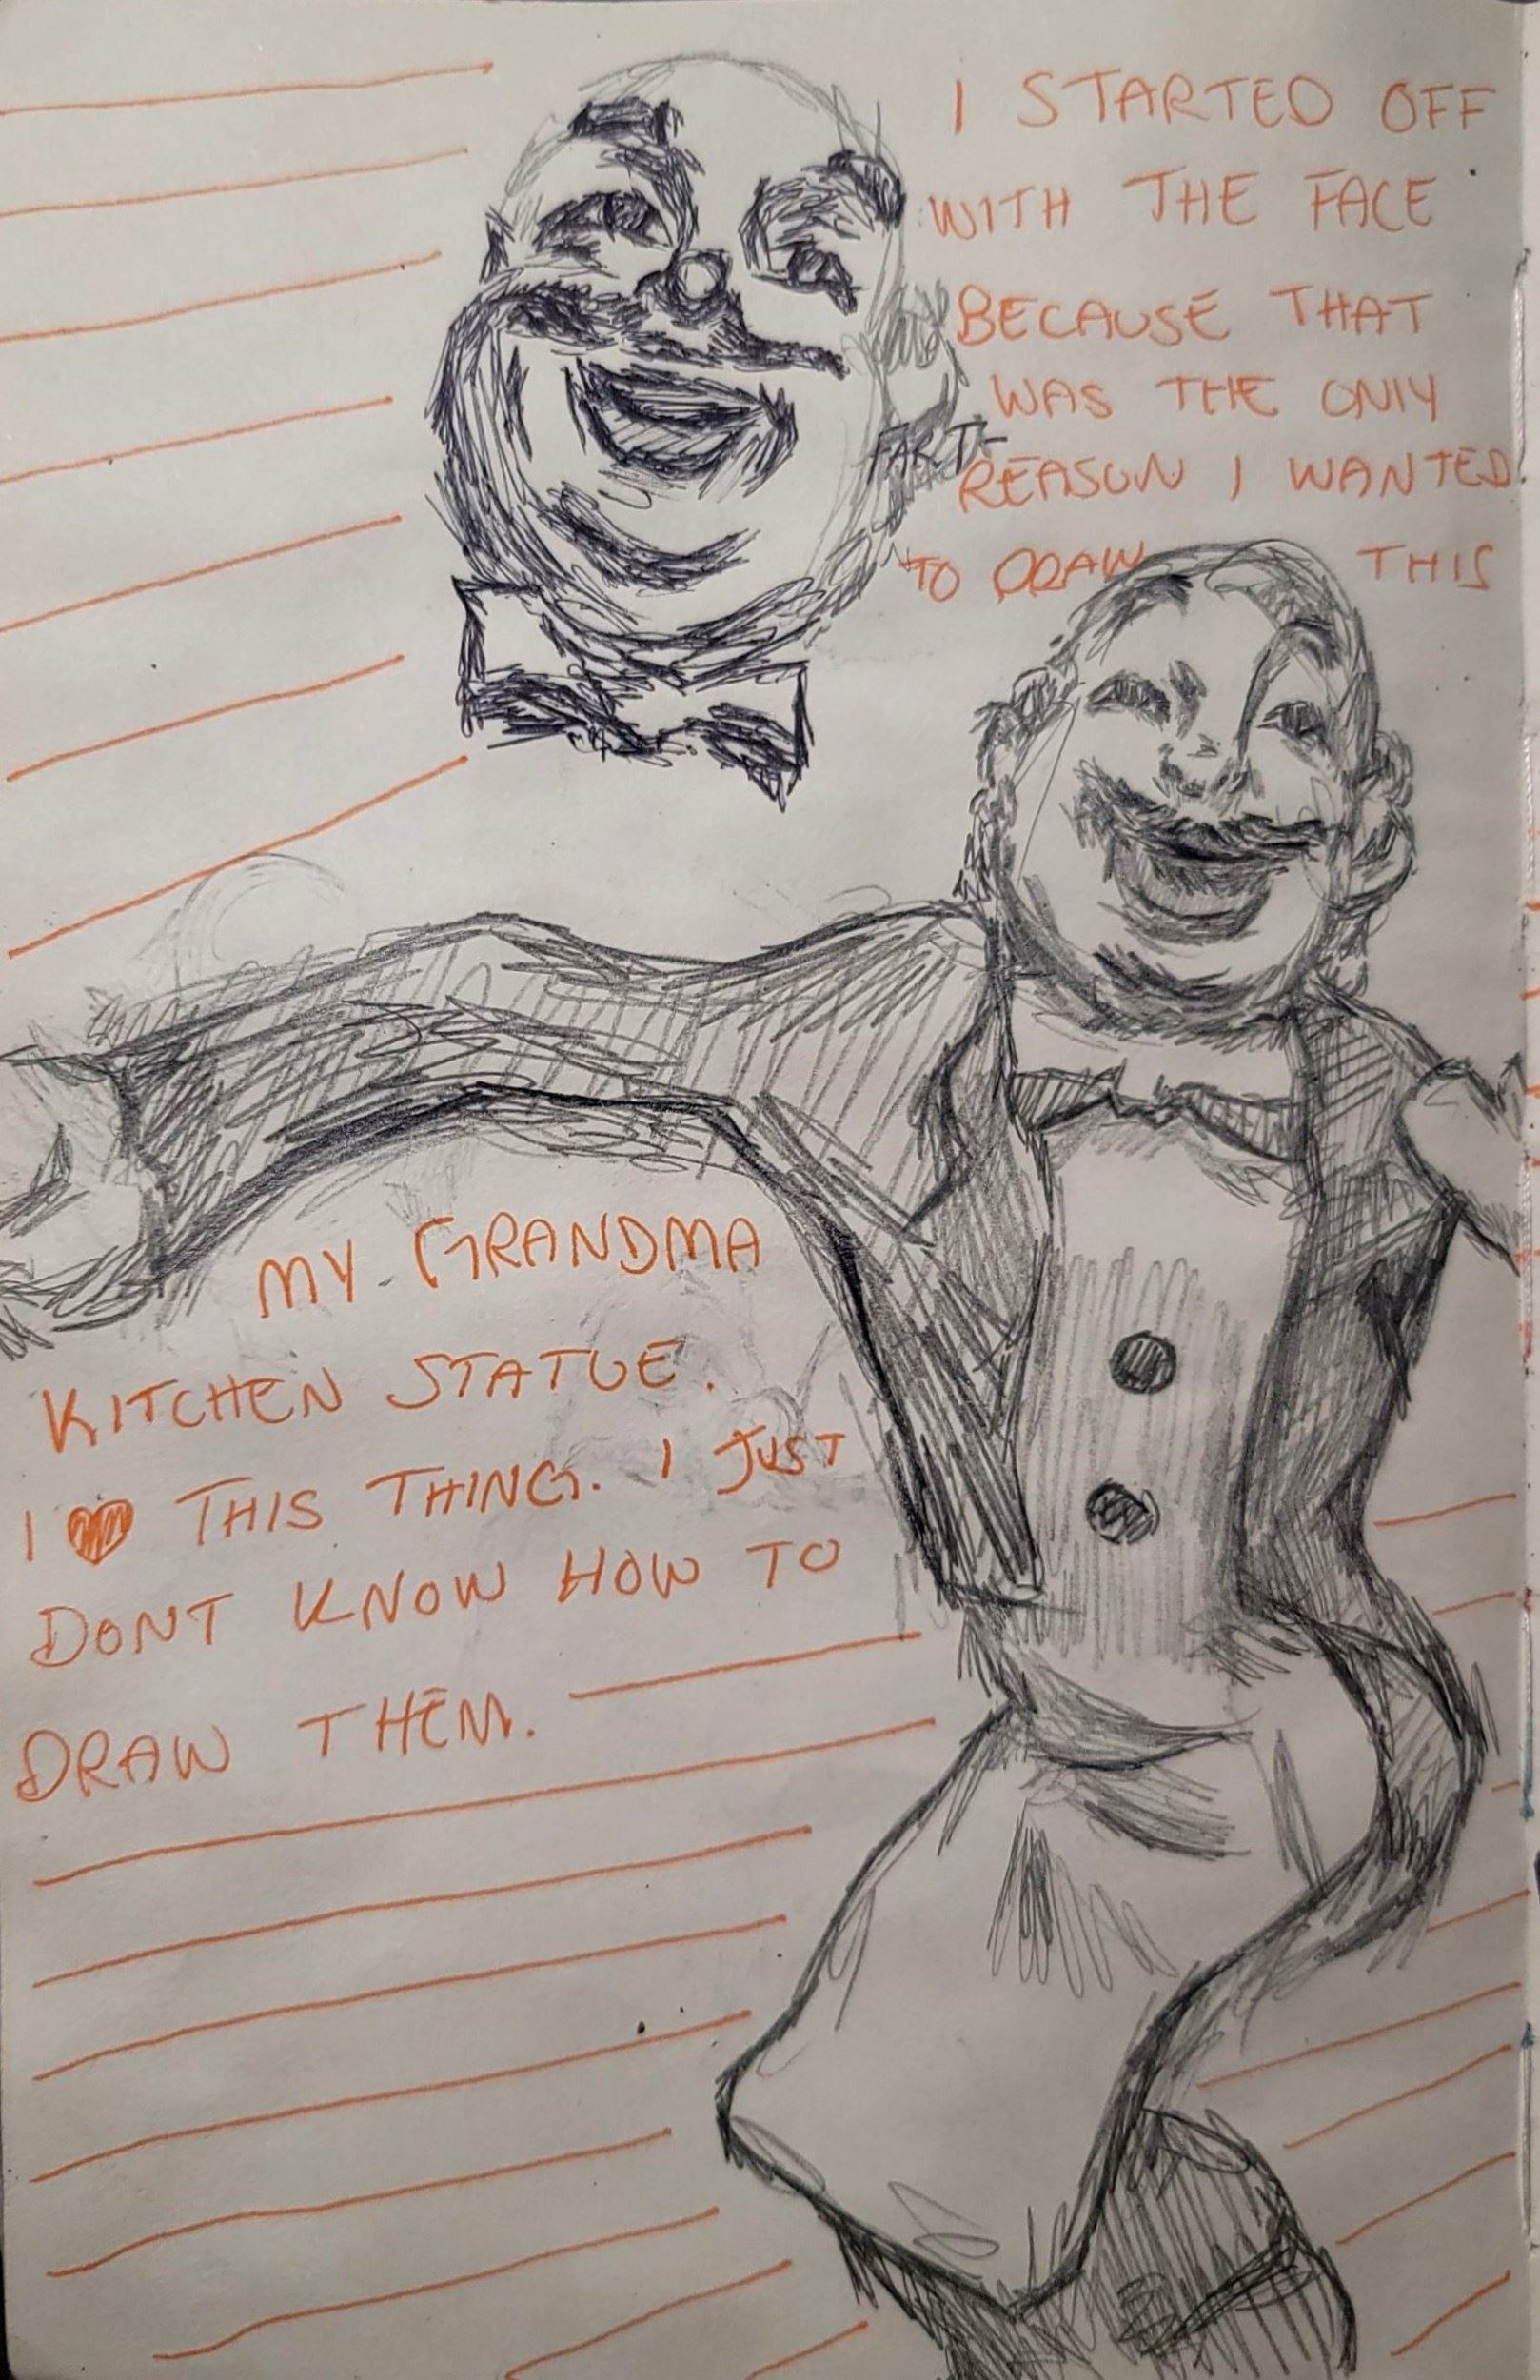 I STARTED OFF
WITH THE FACE
BECAUSE THAT
WAS THE ONLY
REASON I WANTED
TO DRAW THIS
FART
MY GRANDMA
KITCHEN STATUE.
I ❤ THIS THING. I JUST
DONT KNOW HOW TO
DRAW THEM.